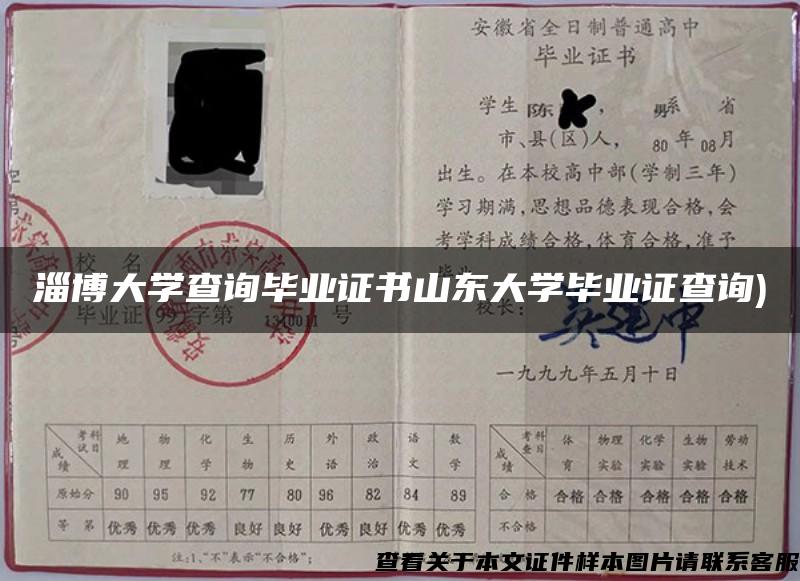 安徽省全日制普通高中
毕业证书
学生 陈 ， 男系 省
市、县(区)人， 80 年 08 月
出生。在本校高中部(学制三年)
学习期满,思想品德表现合格,会
考学科成绩合格,体育合格,准予
校 名
淄博大学查询毕业证书山东大学毕业证查询)
毕业证(99)字第 1310011 号
校长:
一九九九年五月十日
考试科目 地理 物理 化学 生物 历史 外语 政治 语文 数学
成绩
原始分 90 95 92 77 80 96 82 84 89
等 第 优秀 优秀 优秀 良好 良好 优秀 良好 优秀 优秀
注:1、“不”表示“不合格”;
考查科目 体育 物理实验 化学实验 生物实验 劳动技术
成绩
合 格 合格 合格 合格 合格 合格
不合格
查看关于本文证件样本图片请联系客服